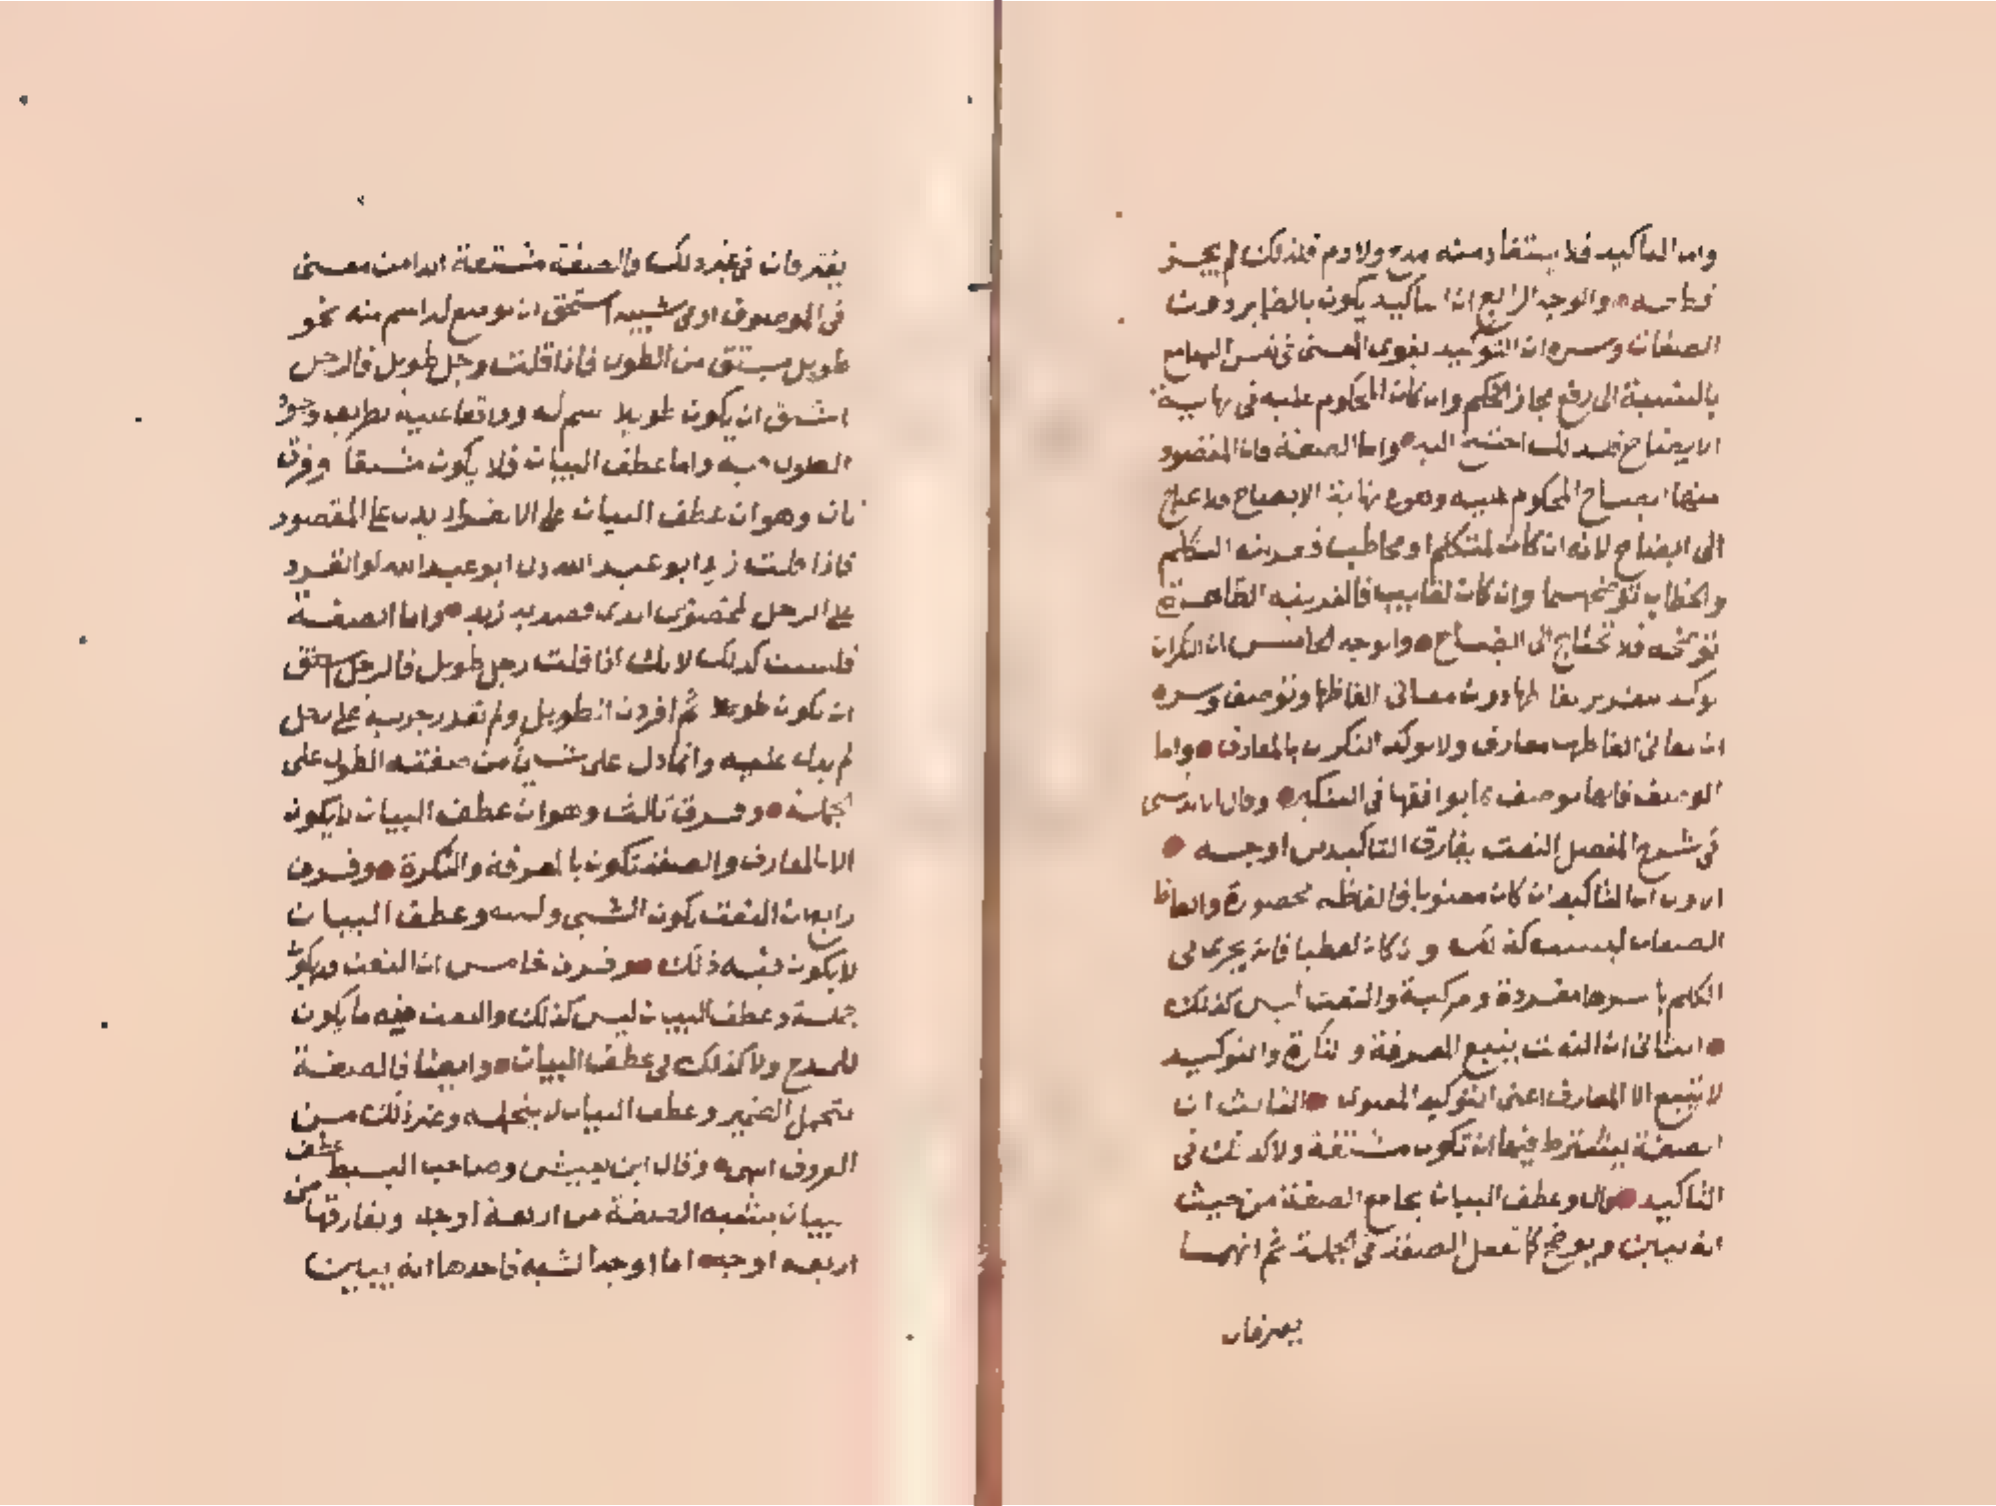 واما التاكيد فلا يستفاد منه مدح ولا ذم فلذلك لم يجز
قطعه والوجه الرابع ان التاكيد يكون بالضماير دون
الصفات وسره ان التوكيد يقوى المعنى في نفس السامع
بالنسبة الى رفع مجاز الحكم وان كان المحكوم عليه في نهاية
الايضاح فلذلك احتيج اليه واما الصفة فان المقصود
منها ايضاح المحكوم عليه وهو في نهاية الايضاح فلا يحتاج
الى ايضاح لانه ان كان لمتكلم او مخاطب فقرينة التكلم
والخطاب توضحهما وان كان لغايب فالقرينة الظاهرة
توضحه فلا تحتاج الى ايضاح والوجه الخامس ان النكرات
يوكد بتقرير الفاظها دون معانى الفاظها وتوصف وسره
ان معانى الفاظها معارف ولا توكد النكرات بالمعارف واما
الوصف فانها توصف بما يوافقها في التنكير وقال الاندلسى
في شرح المفصل النعت يفارق التاكيد من اوجه
الاول ان التاكيد ان كان معنويا فالفاظه محصورة والفاظ
الصفات ليست كذلك وان كان لفظيا فانه يجرى في
الكلم باسرها مفردة ومركبة والنعت ليس كذلك
الثانى ان النعت يتبع المعرفة والنكرة والتوكيد
لا يتبع الا المعارف اعنى التوكيد المعنوى الثالث ان
الصفة يشترط فيها ان تكون مشتقة ولا كذلك في
التاكيد قال وعطف البيان يجامع الصفة من حيث
انه يبين ويوضح كما تفعل الصفة في الجملة ثم انهما
يفترقان
يفترقان في غير ذلك فالصفة مشتقة ابدا من معنى
في الموصوف او في شيء استحق ان يوضع له اسم منه نحو
طويل مشتق من الطول فاذا قلت رجل طويل فالرجل
استحق ان يكون طويلا اسم له وواقعا عليه بطريق وجود
الطول فيه واما عطف البيان فلا يكون مشتقا وفرق
ثان وهو ان عطف البيان على الانفراد يدل على المقصود
فاذا قلت زيد ابو عبد الله دل ابو عبد الله لو انفرد
على الرجل المخصوص الذى قصد به زيد واما الصفة
فليست كذلك لانك اذا قلت رجل طويل فالرجل استحق
ان يكون طويلا ثم افردت الطويل ولم تقدر جريه على رجل
لم يدل عليه وانما دل على شيء من صفته الطول على
الجملة وفرق ثالث وهو ان عطف البيان لا يكون
الا بالمعارف والصفة تكون بالمعرفة والنكرة وفرق
رابع ان النعت يكون للشى ولسببه وعطف البيان
لا يكون فيه ذلك وفرق خامس ان النعت قد يكون
جملة وعطف البيان ليس كذلك والنعت فيه ما يكون
للمدح ولا كذلك في عطف البيان وايضا فالصفة
تتحمل الضمير وعطف البيان لا يتحمله وغير ذلك من
الفروق انتهى وقال ابن يعيش وصاحب البسيط عطف
بيان يشبه الصفة من اربعة اوجه ويفارقها من
اربعه اوجه اما اوجه الشبه فاحدها انه يبين